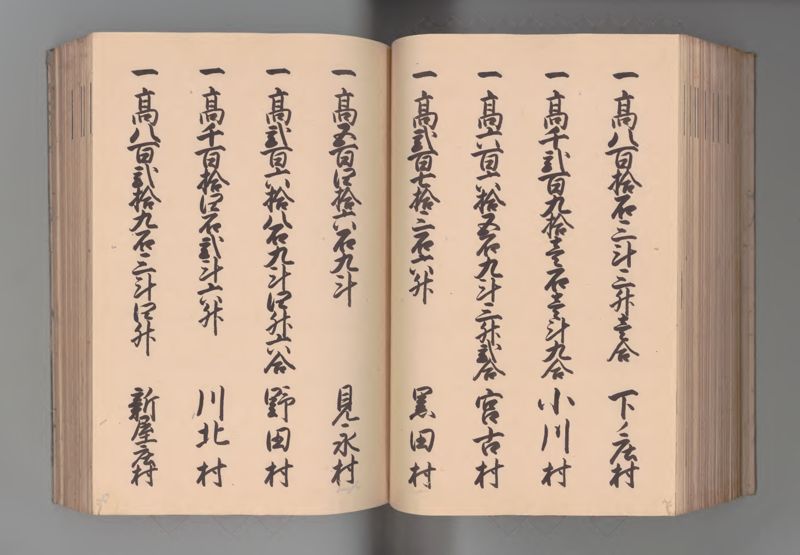 一 高八百拾石三斗三升壱合 下ノ庄村
一 高千弐百九拾壱石壱斗九合 小川村
一 高六百六拾五石九斗三升弐合 宮古村
一 高弐百七拾三石六升 黒田村
一 高五百四拾六石九斗 見永村
一 高弐百六拾八石九斗四升六合 野田村
一 高千百拾四石弐斗六升 川北村
一 高八百弐拾九石三斗四升 新屋庄村